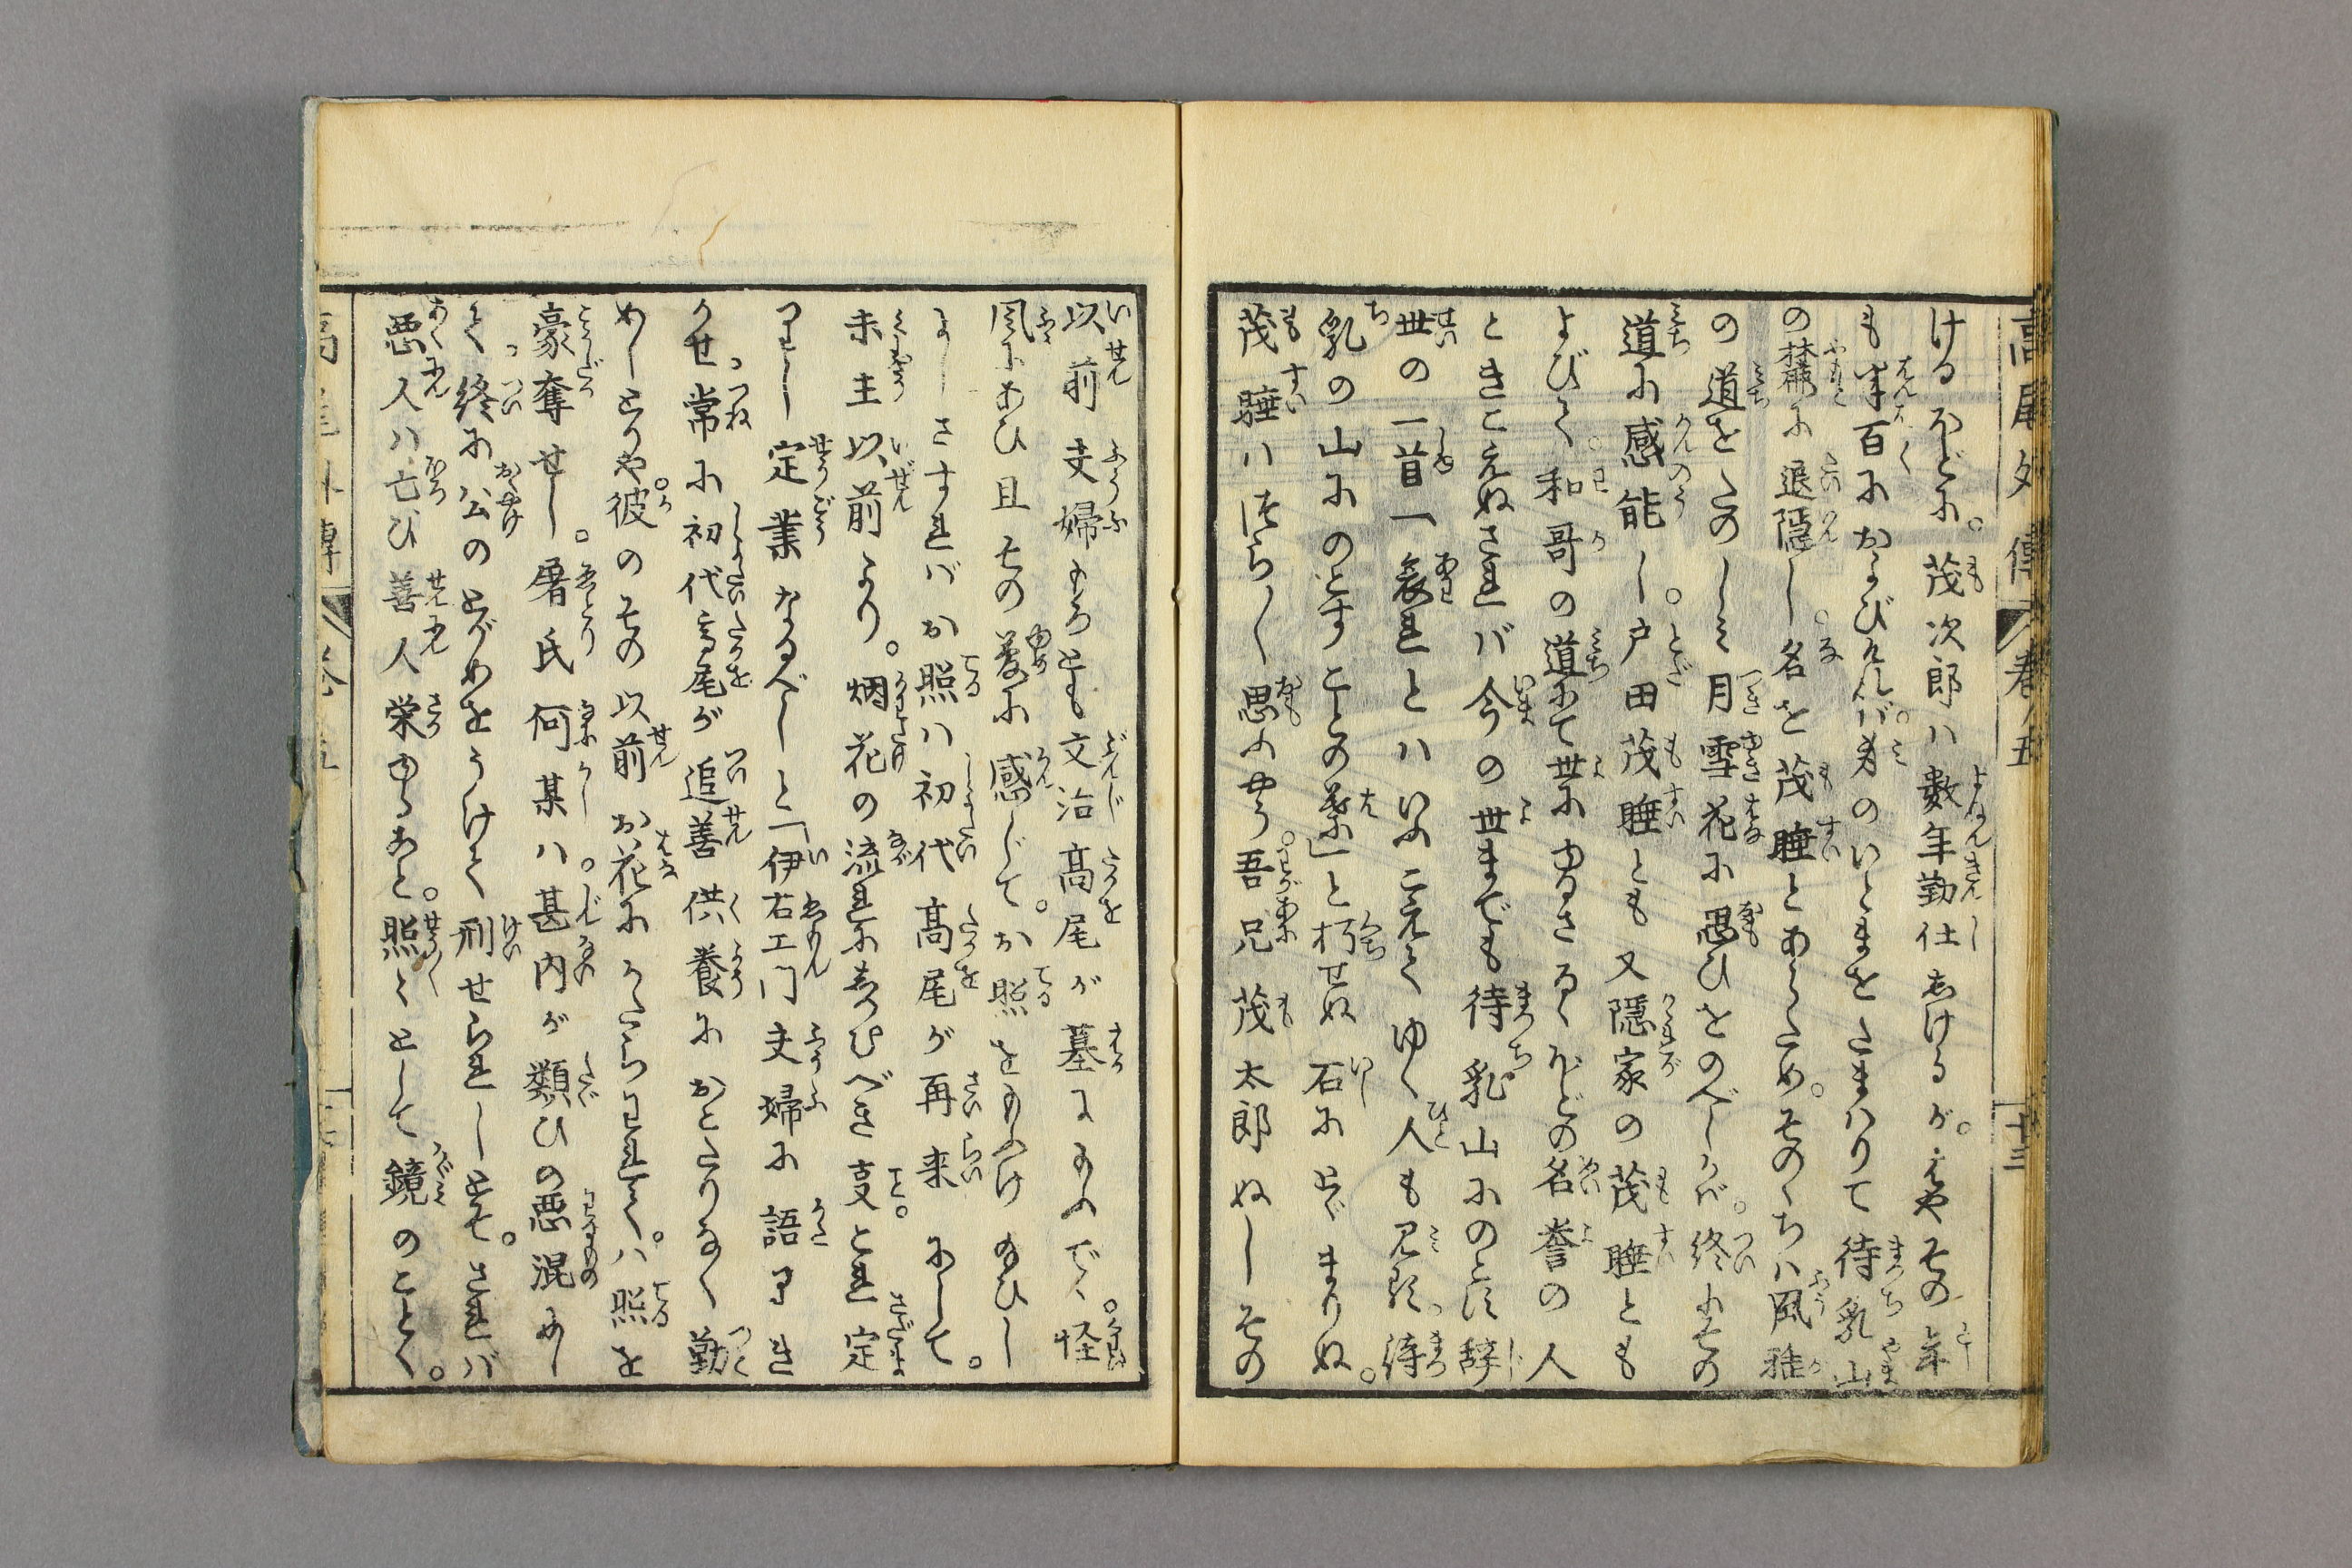 高尾外傳 巻ノ五 十三
けるほどに。茂次郎ハ數年勤仕しけるが。はやその年
も半百におよびぬれバ。身のいとまをたまハりて待乳山
の麓に退隠し。名を茂睡とあらため。そのゝちハ風雅
の道をたのしミ月雪花に思ひをのべしかバ。終にその
道に感能し。戸田茂睡とも又隠家の茂睡とも
よびて。和哥の道にて世にゆるさるゝほどの名誉の人
ときこえぬされバ今の世までも待乳山にのこす辞
世の一首「哀れとハいふこえてゆく人も見よ待
乳の山にのこすことの葉」と朽せぬ石にとゞまりぬ。
茂睡ハつら〳〵思ふやう。吾兄茂太郎ぬしその
以前夫婦もろとも文治高尾が墓にまふでゝ。怪
風にあひ且その夢に感じて。お照をまふけ給ひし
よしさすれバお照ハ初代高尾が再来にして。
未生以前より。烟花の流れに立ぴべき支とれ定
りし定業なるべしと「伊右エ門夫婦に語りき
かせ常に初代高尾が追善供養におこたりなく勤
めしとかや彼のその以前お花にかたらはれて。ハ照を
豪奪せし。屠氏何某ハ。甚内が類ひの悪混めし
て終に公のとがめをうけて刑せられしとぞ。されバ
悪人ハ亡び善人栄ゆること。照々として鏡のことく。